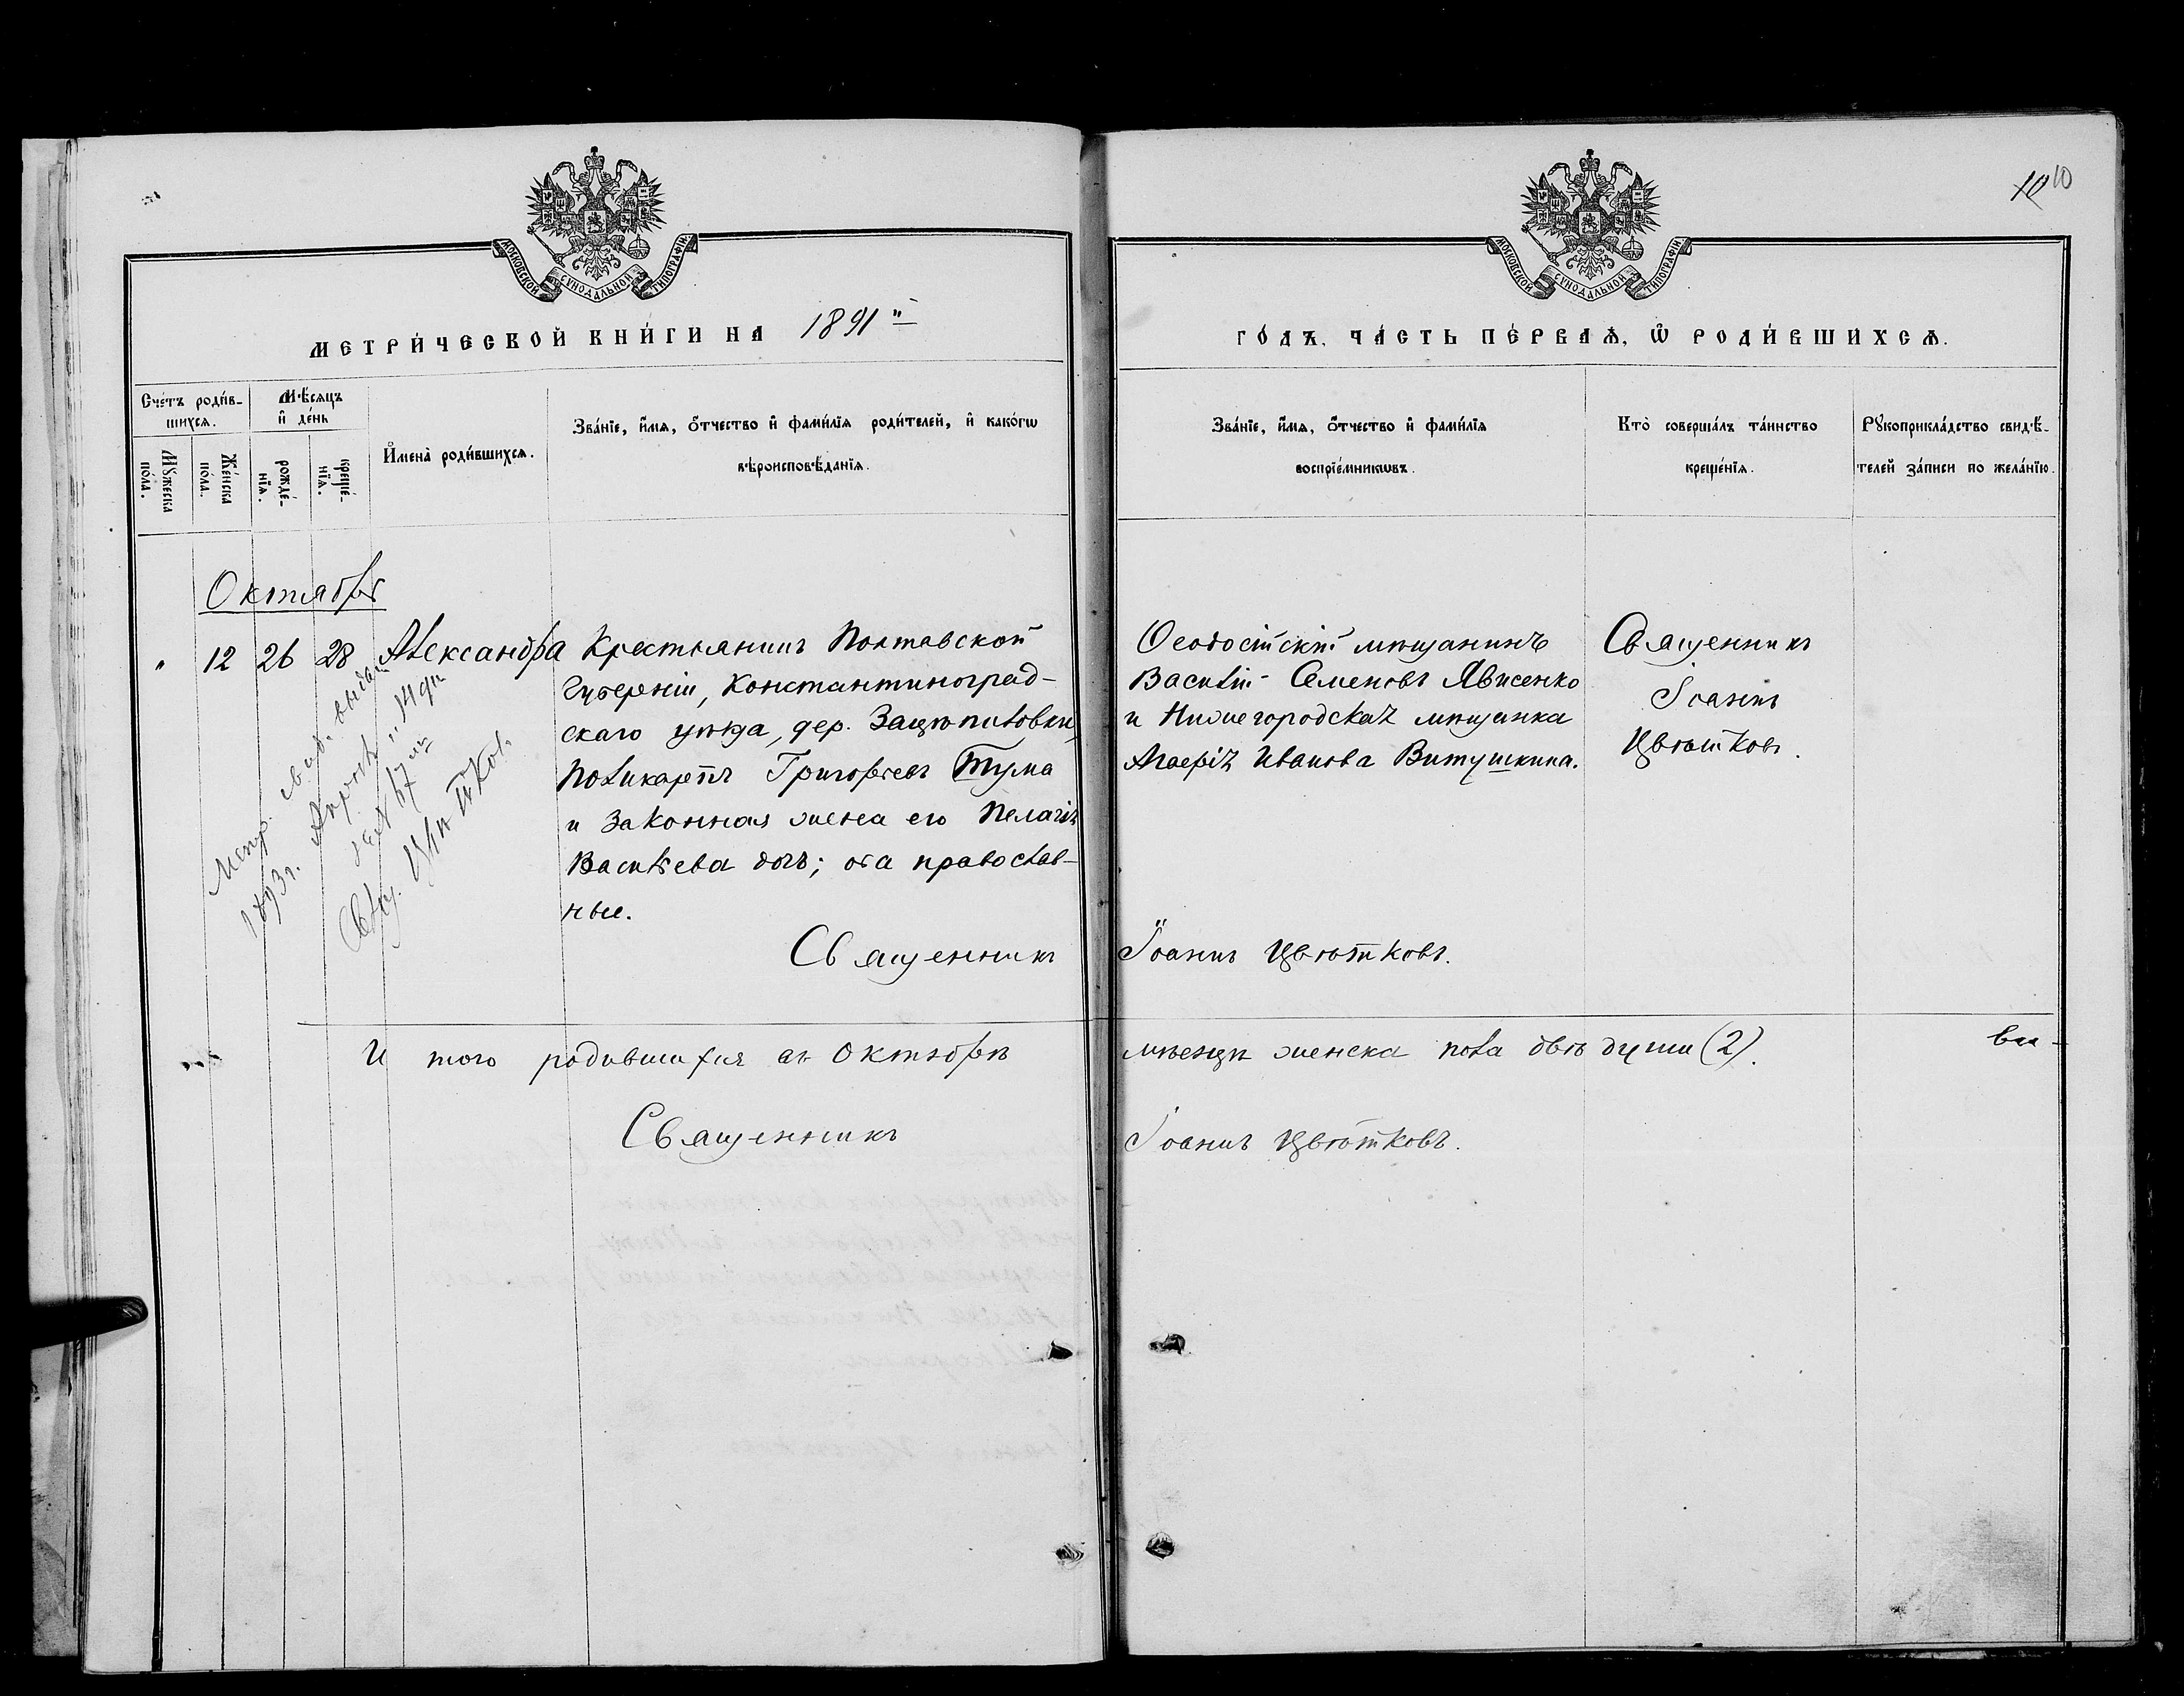 10 10
МОСКОВСКОЙ СѴНОДАЛЬНОЙ ТИПОГРАФІИ.
МОСКОВСКОЙ СѴНОДАЛЬНОЙ ТИПОГРАФІИ.
МЕТРИ́ЧЕСКОЙ КНИ́ГИ НА 1891й
ГО́ДЪ, ЧА́СТЬ ПЕ́РВАѦ, Ѡ҆ РОДИ́ВШИХСѦ.
Сче́тъ роди́в-
шихсѧ.
Мꙋ́жеска
по́ла.
Же́нска
по́ла.
Мѣ́сѧцъ
и҆ де́нь
рожде́-
нїѧ.
креще́-
нїѧ.
И҆мена̀ роди́вшихсѧ.
Зва́нїе, и҆́мѧ, ѻ҆́тчество и҆ фами́лїѧ роди́телей, и҆ како́гѡ
вѣроисповѣ́данїѧ.
Зва́нїе, и҆́мѧ, ѻ҆́тчество и҆ фами́лїѧ
воспрїе́мникѡвъ.
Кто̀ соверша́лъ та́инство
креще́нїѧ.
Рꙋкоприкла́дство свидѣ́-
телей за́писи по жела́нїю.
Октябрь
" 12 26 28 Александра
Крестьянинъ Полтавской
Губерніи, Константиноград-
скаго уѣзда, дер. Зацѣпиловки,
Поликарпъ Григорьевъ Тума
и законная жена его Пелагія
Васильева дочь; оба православ-
ные.
Ѳеодосійскій мѣщанинъ
Василій Семеновъ Явисенко
и Нижегородская мѣщанка
Агаѳія Иванова Витушкина.
Священникъ
Іоаннъ
Цвѣтковъ.
Метр. свид. выдан
1893 г. Апрѣля 14 дн
за № 67
Свящ. Цвѣтков
Священникъ Іоаннъ Цвѣтковъ.
И того родившихся въ Октябрѣ мѣсяцѣ женска пола двѣ души (2).
Священникъ Іоаннъ Цвѣтковъ.